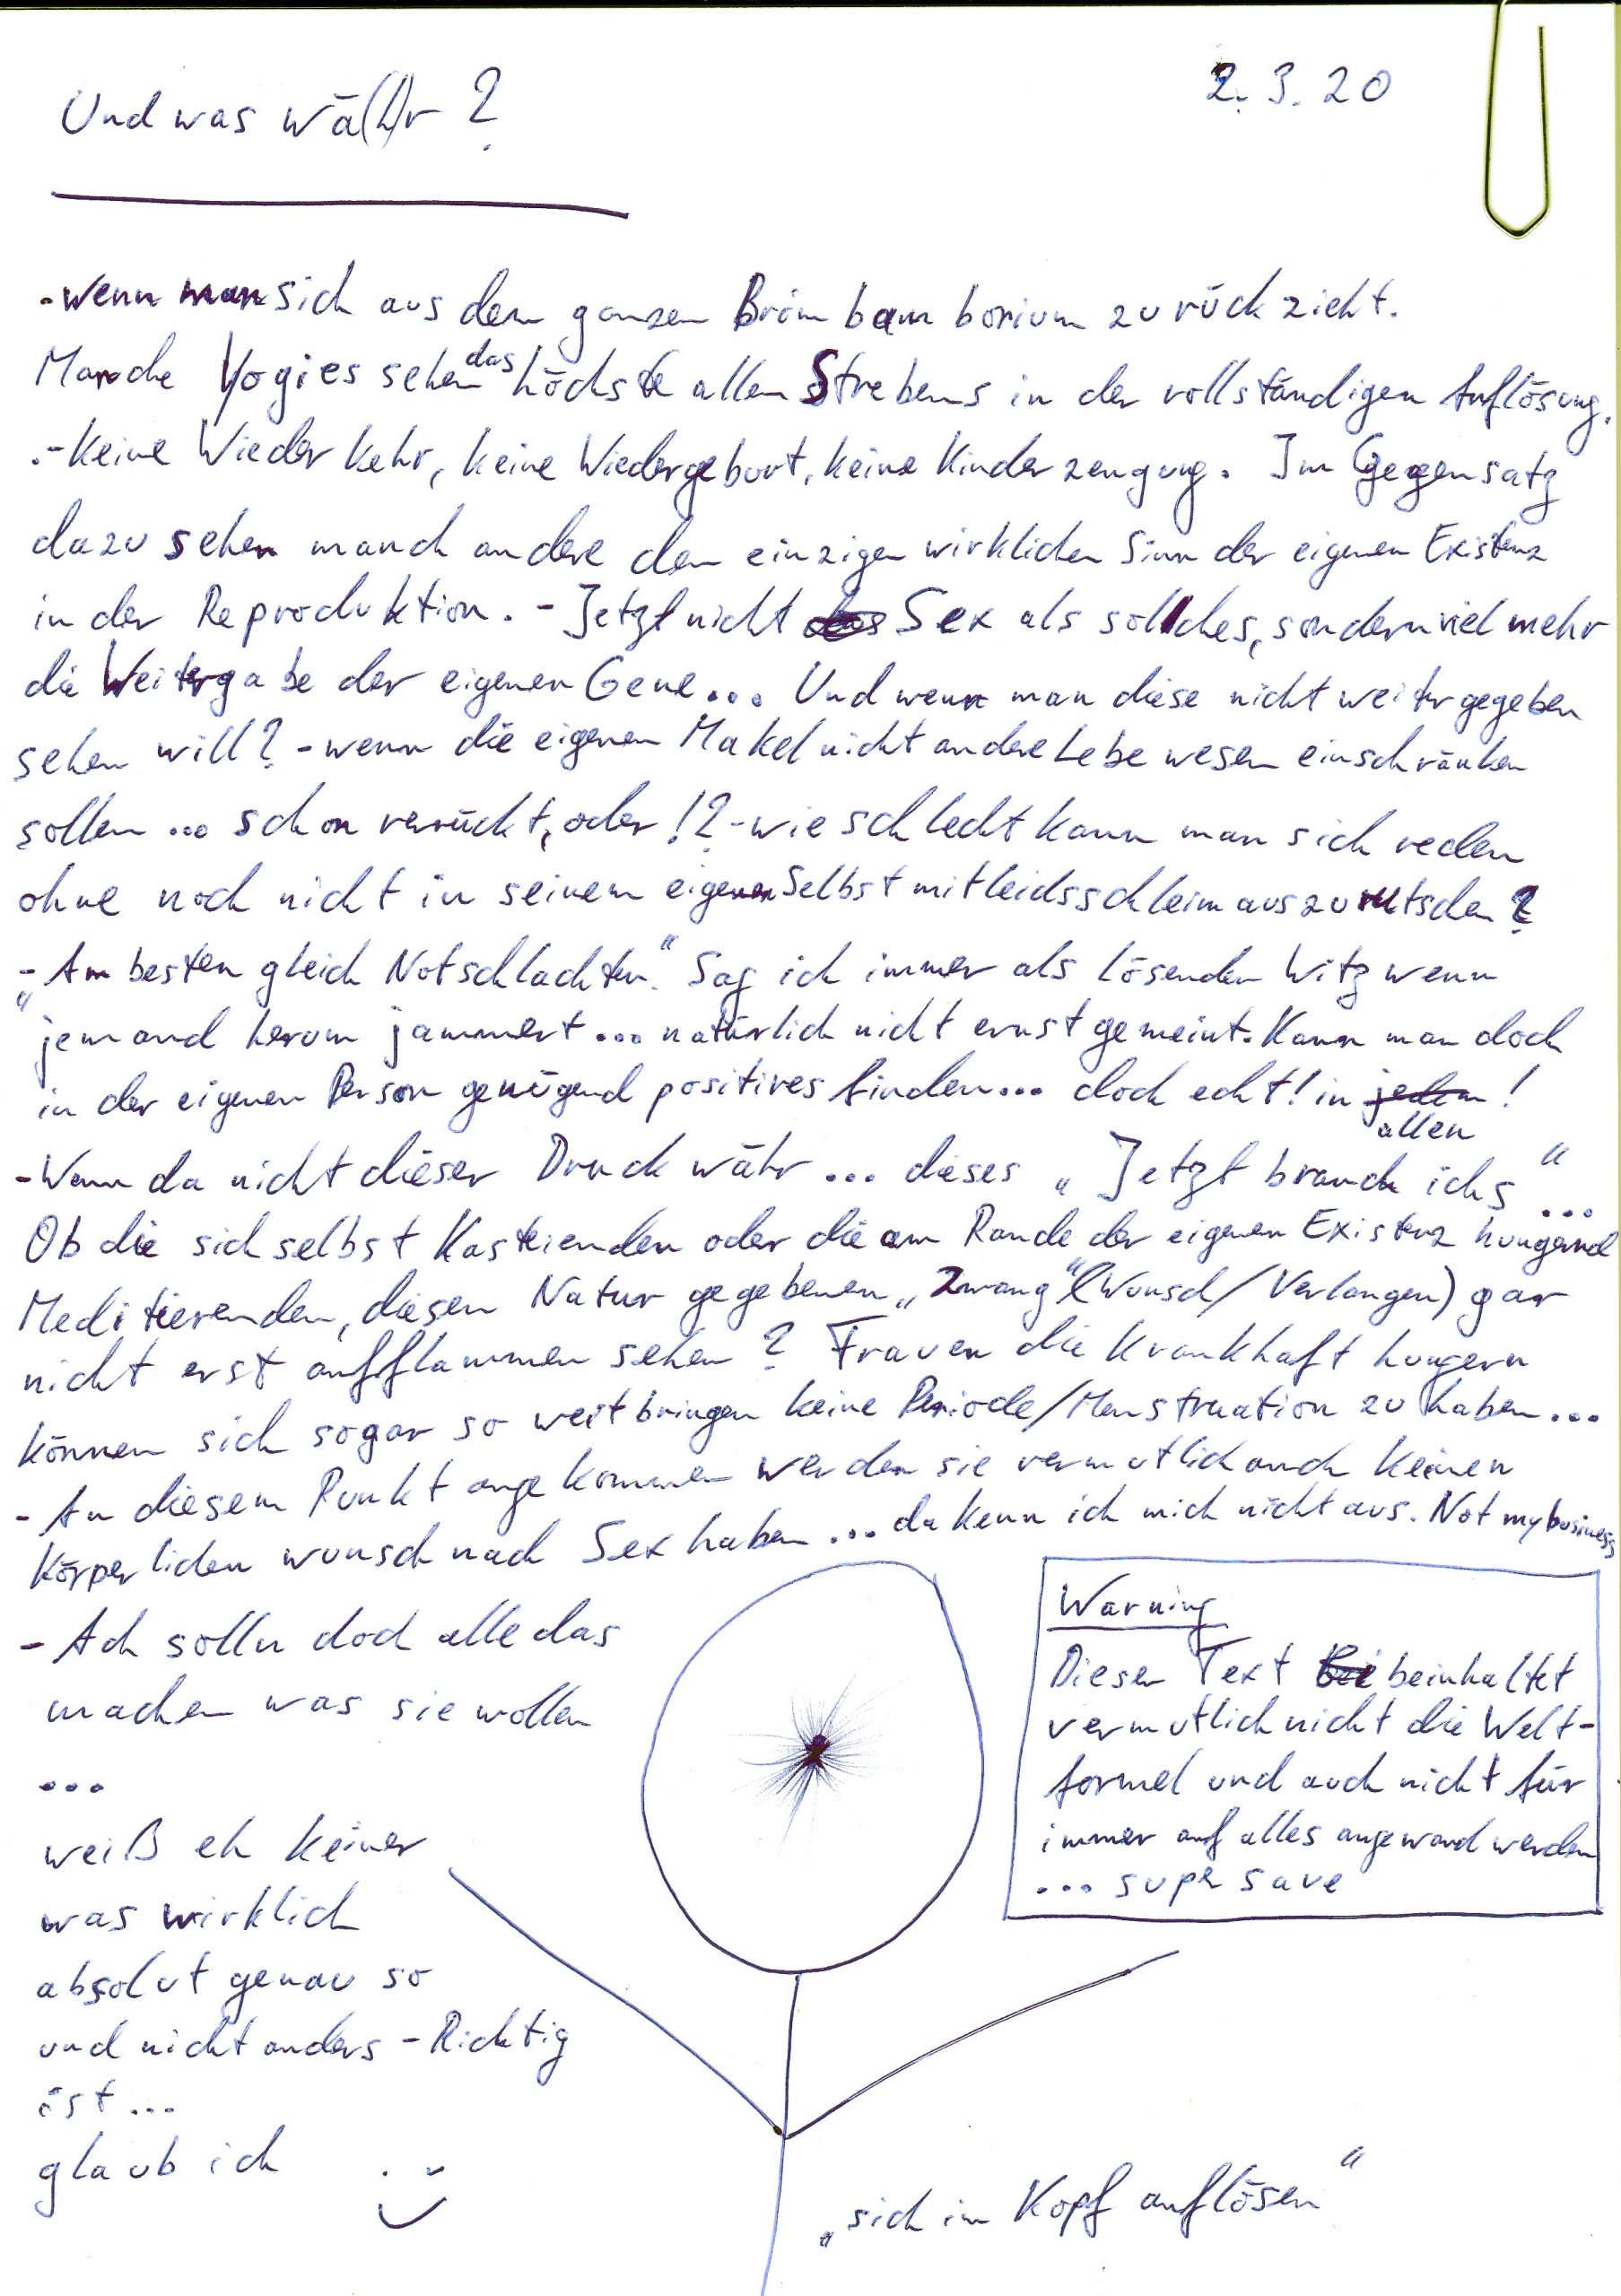 2. 3. 20
Und was wä(h)r?
- wenn man sich aus dem ganzen Brimbamborium zurück zieht.
Manche Yogies sehen das höchste allen Strebens in der vollständigen Auflösung.
- Keine Wiederkehr, keine Wiedergeburt, keine Kinderzeugung. Im Gegensatz
dazu sehen manch andere den einzigen wirklichen Sinn der eigenen Existenz
in der Reproduktion. - Jetzt nicht Sex als solches, sondern viel mehr
die Weitergabe der eigenen Gene... Und wenn man diese nicht weitergegeben
sehen will? - wenn die eigenen Makel nicht andere Lebewesen einschränken
sollen ... schon verrückt, oder!? - wie schlecht kann man sich reden
ohne noch nicht in seinem eigenen Selbstmitleidsschleim auszurutschen?
- „Am besten gleich Notschlachten." Sag ich immer als lösenden Witz wenn
jemand herum jammert... natürlich nicht ernst gemeint. Kann man doch
in der eigenen Person genügend positives finden... doch echt! in jedem !
allen
- Wenn da nicht dieser Druck währ ... dieses „Jetzt brauch ichs" ...
Ob die sich selbst Kasteienden oder die am Rande der eigenen Existenz hungernd
Meditierenden, diesen Natur gegebenen „Zwang" (Wunsch/Verlangen) gar
nicht erst aufflammen sehen? Frauen die krankhaft hungern
können sich sogar so weit bringen keine Periode/Menstruation zu haben...
- An diesem Punkt angekommen werden sie vermutlich auch keinen
körperlichen wunsch nach Sex haben ... da kenn ich mich nicht aus. Not my business
- Ach solln doch alle das
machen was sie wollen
...
weiß eh keiner
was wirklich
absolut genau so
und nicht anders - Richtig
ist ...
glaub ich
Warning
Dieser Text beinhaltet
vermutlich nicht die Welt-
formel und auch nicht für
immer auf alles angewand werden
... super save
„sich im Kopf auflösen"